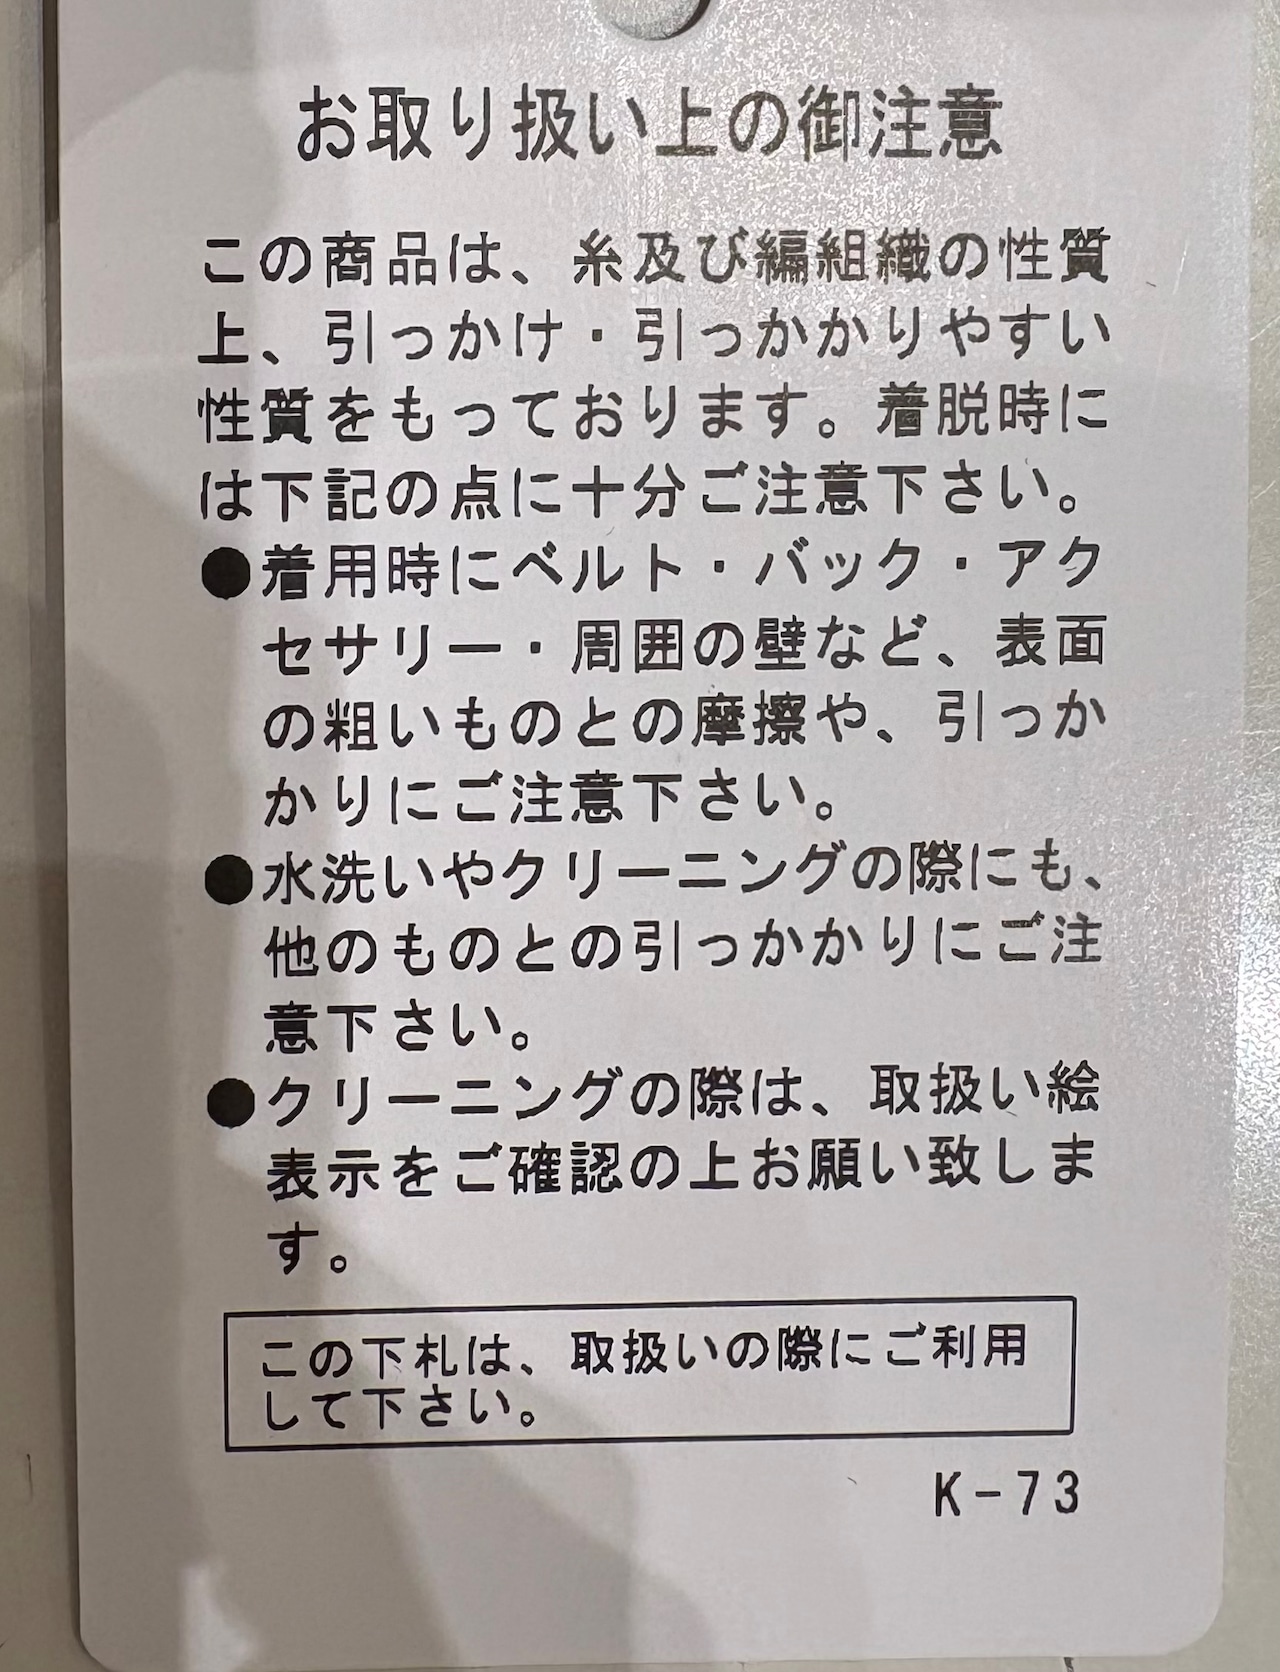 お取り扱い上の御注意
この商品は、糸及び編組織の性質
上、引っかけ・引っかかりやすい
性質をもっております。着脱時に
は下記の点に十分ご注意下さい。
●着用時にベルト・バック・アク
セサリー・周囲の壁など、表面
の粗いものとの摩擦や、引っか
かりにご注意下さい。
●水洗いやクリーニングの際にも、
他のものとの引っかかりにご注
意下さい。
●クリーニングの際は、取扱い絵
表示をご確認の上お願い致しま
す。
この下札は、取扱いの際にご利用
して下さい。
K-73